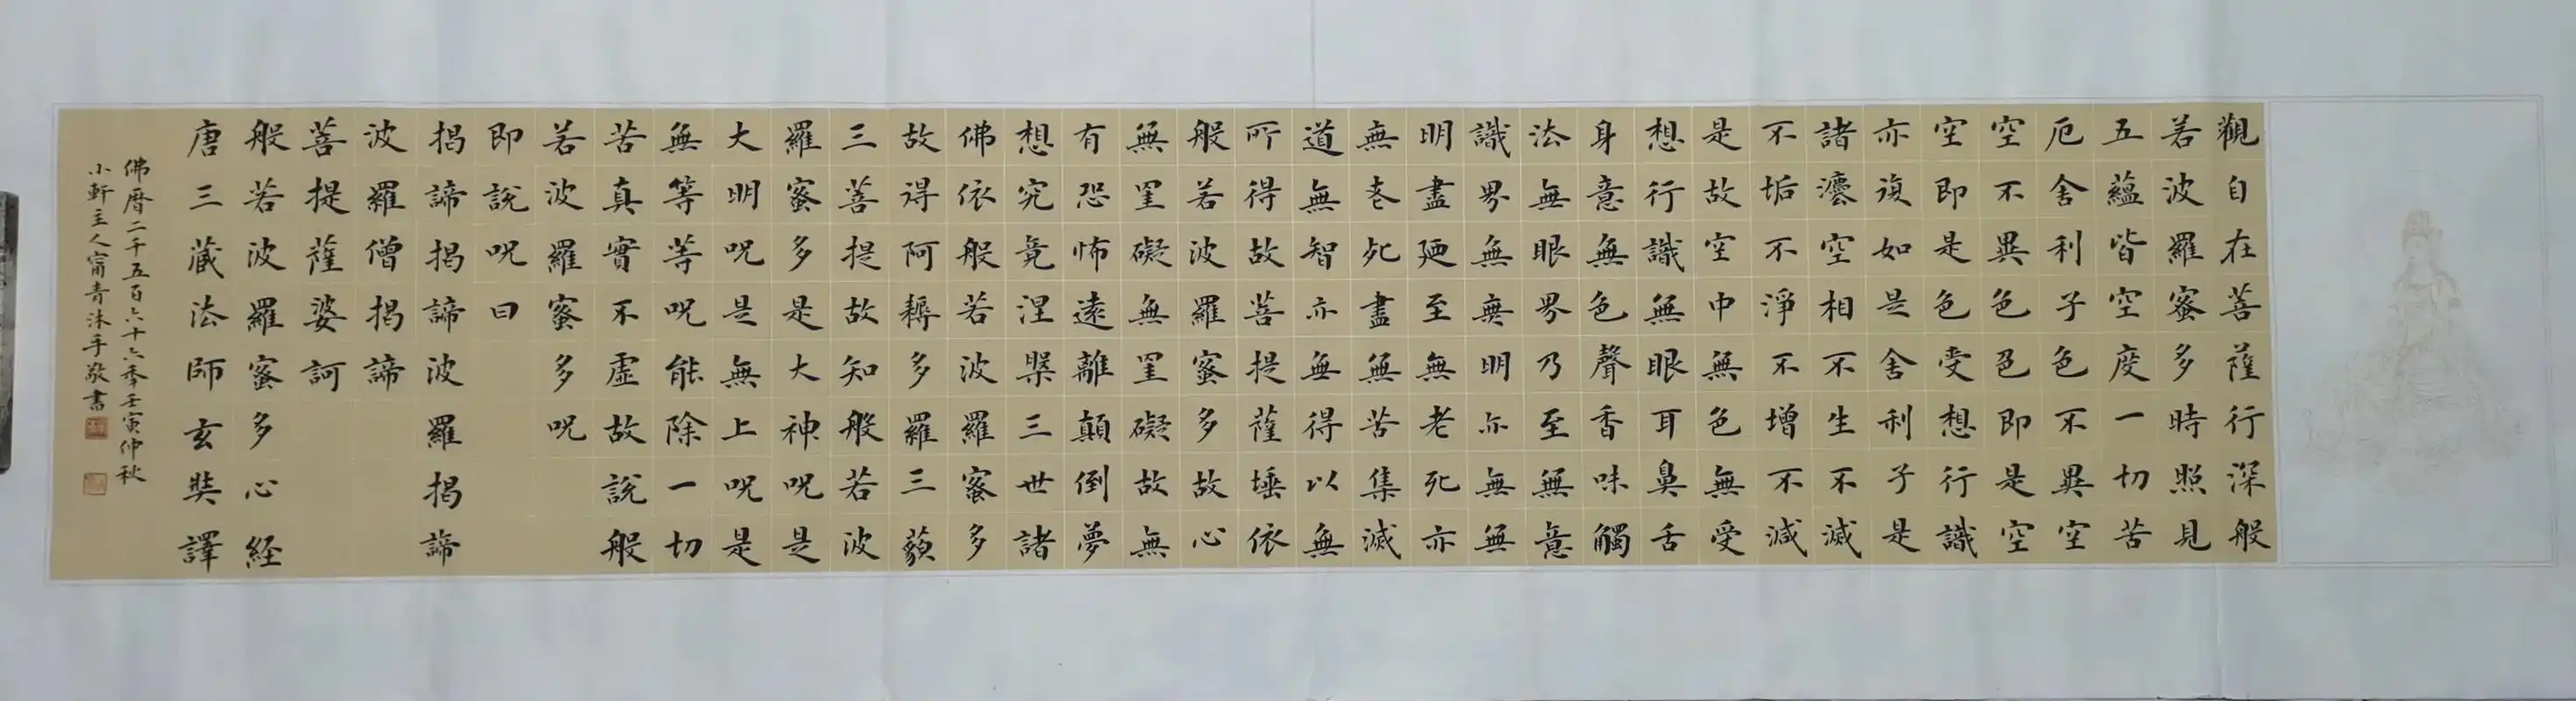 觀自在菩薩行深般
若波羅蜜多時照見
五蘊皆空度一切苦
厄舍利子色不異空
空不異色色即是空
空即是色受想行識
亦復如是舍利子是
諸灋空相不生不滅
不垢不淨不增不減
是故空中無色無受
想行識無眼耳鼻舌
身意無色聲香味觸
法無眼界乃至無意
識界無無明亦無無
明盡廼至無老死亦
無老死盡無苦集滅
道無智亦無得以無
所得故菩提薩埵依
般若波羅蜜多故心
無罣礙無罣礙故無
有恐怖遠離顛倒夢
想究竟涅槃三世諸
佛依般若波羅蜜多
故得阿耨多羅三藐
三菩提故知般若波
羅蜜多是大神呪是
大明呪是無上呪是
無等等呪能除一切
苦真實不虛故說般
若波羅蜜多呪
即說呪曰
揭諦揭諦波羅揭諦
波羅僧揭諦
菩提薩婆訶
般若波羅蜜多心経
唐三藏法師玄奘譯
佛曆二千五百六十六季壬寅仲秋
小軒主人甯青沐手敬書